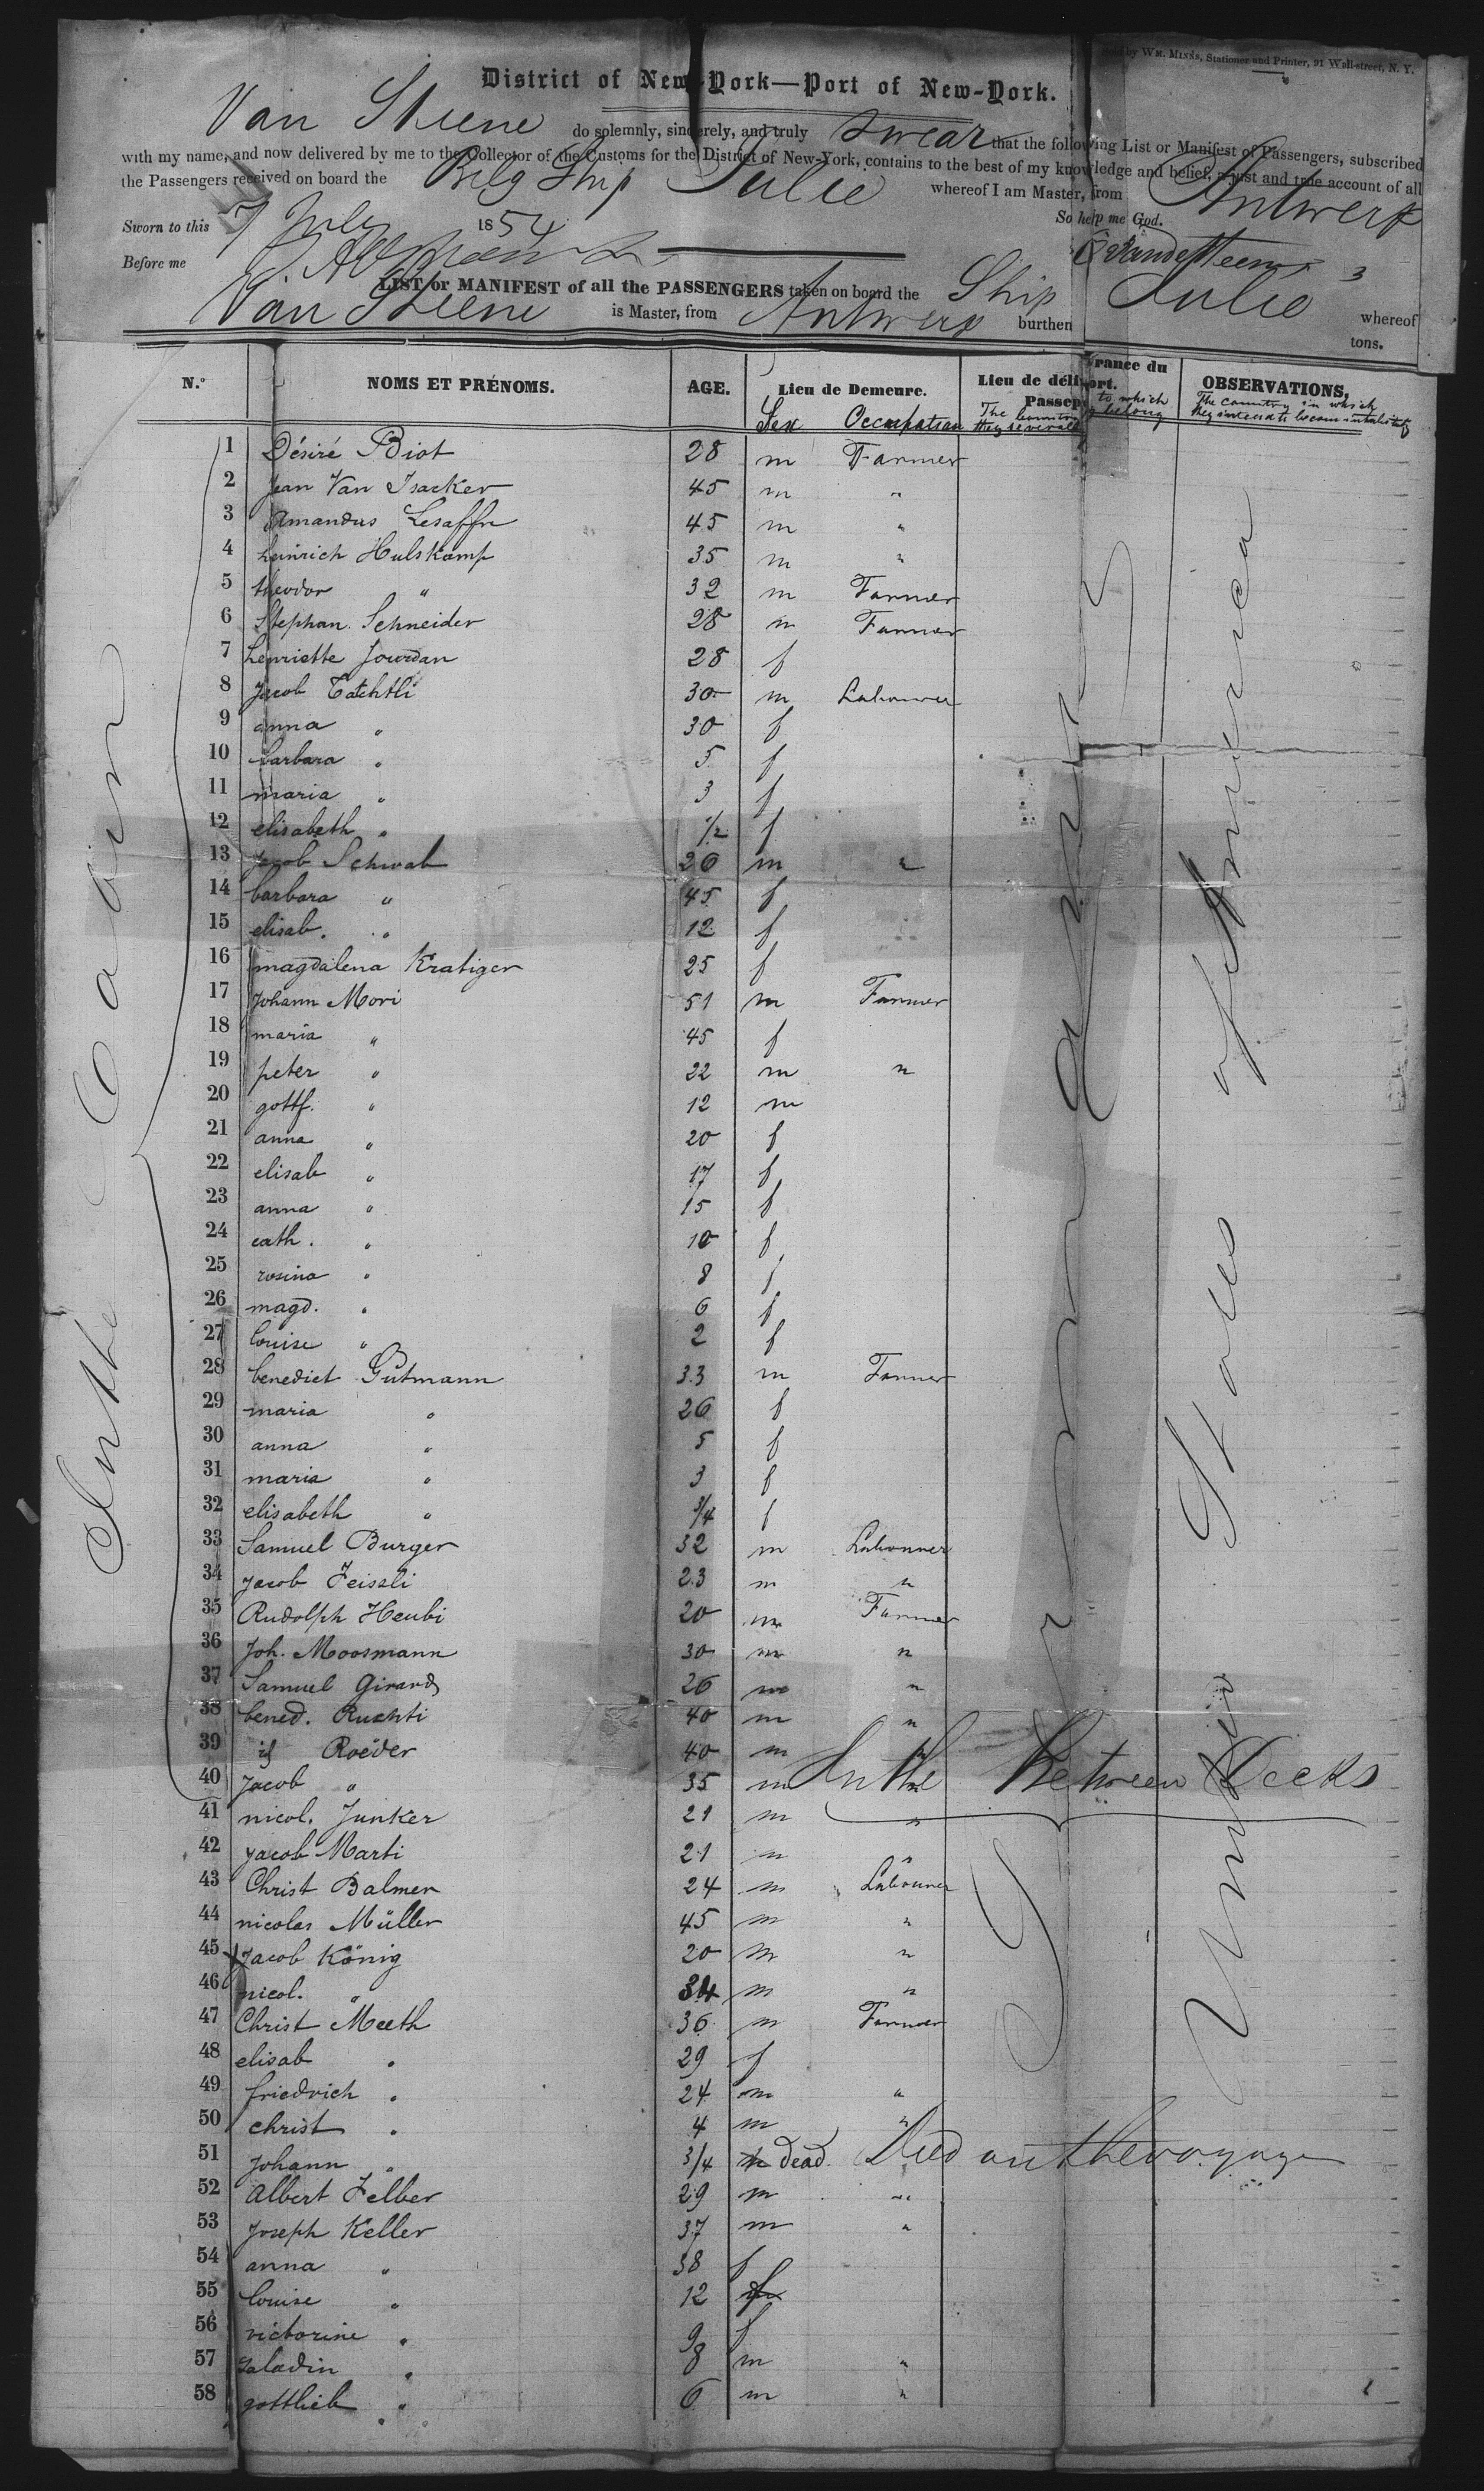 Sold by WM. MINNS, Stationer and Printer, 91 Wall-street, N. Y.
District of New-York—Port of New-York.
Van Steene do solemnly, sincerely, and truly swear that the following List or Manifest of Passengers, subscribed
with my name, and now delivered by me to the Collector of the Customs for the District of New-York, contains to the best of my knowledge and belief, a just and true account of all
the Passengers received on board the Belg Ship Julie whereof I am Master, from Antwerp
Sworn to this 7 July 1854 So help me God.
Before me
LIST or MANIFEST of all the PASSENGERS taken on board the Ship Julie whereof
Van Steene is Master, from Antwerp burthen tons.
N.º NOMS ET PRÉNOMS. AGE. Lieu de Demeure. Lieu de délivrance du Passeport. OBSERVATIONS,
Sex Occupation The country to which they severally belong The country in which they intend to become inhabitants
1 Désiré Biot 28 m Farmer
2 Jean Van Isacker 45 m "
3 Amandus Lesaffre 45 m "
4 heinrich Hulskamp 35 m "
5 theodor " 32 m Farmer
6 Stephan Schneider 28 m Farmer
7 henriette Jourdan 28 f
8 Jacob Tatchtli 30 m Labourer
9 anna " 30 f
10 barbara " 5 f
11 maria " 3 f
12 elisabeth " 1/2 f
13 Jacob Schwab 26 m "
14 barbara " 45 f
15 elisab. " 12 f
16 magdalena Kratiger 25 f
17 Johann Mori 51 m Farmer
18 maria " 45 f
19 peter " 22 m "
20 gottf. " 12 m
21 anna " 20 f
22 elisab " 17 f
23 anna " 15 f
24 cath. " 10 f
25 rosina " 8 f
26 magd. " 6 f
27 louise " 2 f
28 benedict Gutmann 33 m Farmer
29 maria " 26 f
30 anna " 5 f
31 maria " 3 f
32 elisabeth " 3/4 f
33 Samuel Burger 32 m Labourer
34 Jacob Feissli 23 m "
35 Rudolph Heubi 20 m Farmer
36 Joh. Moosmann 30 m "
37 Samuel Girard 26 m "
38 bened. Ruchti 40 m "
39 id Roëder 40 m "
40 Jacob " 35 m "
In the Between Decks
41 nicol. Junker 21 m "
42 jacob Marti 21 m "
43 Christ Balmer 24 m Labourer
44 nicolas Müller 45 m "
45 Jacob König 20 m "
46 nicol. " 34 m "
47 Christ Meeth 36 m Farmer
48 elisab " 29 f
49 friedrich " 24 m "
50 christ " 4 m "
51 Johann " 3/4 m dead. Died on the voyage
52 Albert Felber 29 m "
53 Joseph Keller 37 m "
54 anna " 38 f
55 louise " 12 f
56 victorine " 9 f
57 Saladin " 8 m "
58 gottlieb " 6 m "
In the Cabin
Germany
United States of America